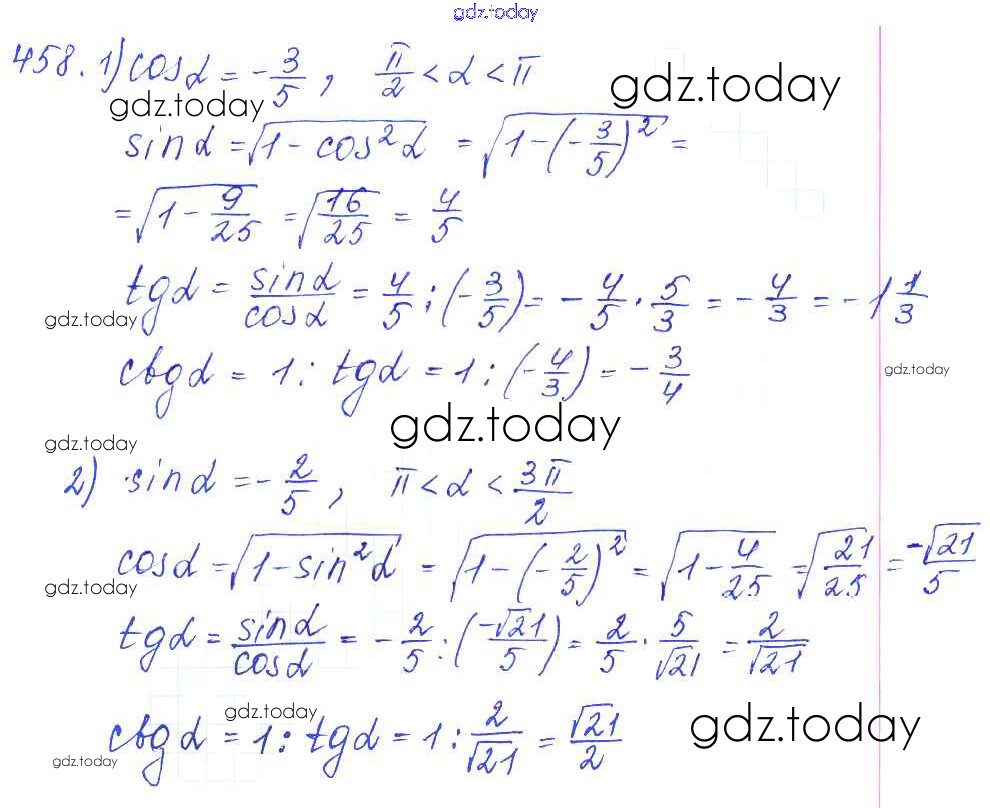 gdz.today
458. 1) cosα = -3/5, π/2 < α < π
gdz.today
gdz.today
sinα = √(1 - cos²α) = √(1 - (-3/5)²) =
= √(1 - 9/25) = √(16/25) = 4/5
tgα = sinα/cosα = 4/5 : (-3/5) = -4/5 · 5/3 = -4/3 = -1 1/3
gdz.today
ctgα = 1 : tgα = 1 : (-4/3) = -3/4
gdz.today
gdz.today
gdz.today
2) sinα = -2/5, π < α < 3π/2
cosα = √(1 - sin²α) = √(1 - (-2/5)²) = √(1 - 4/25) = √(21/25) = -√21/5
gdz.today
tgα = sinα/cosα = -2/5 : (-√21/5) = 2/5 · 5/√21 = 2/√21
gdz.today
gdz.today
ctgα = 1 : tgα = 1 : 2/√21 = √21/2
gdz.today